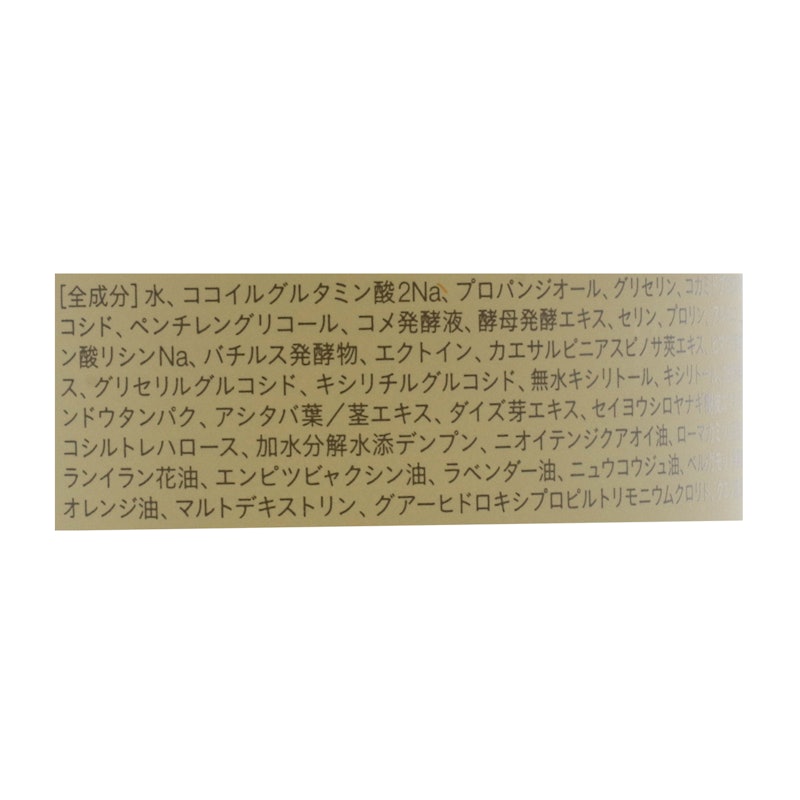 [全成分]水、ココイルグルタミン酸2Na、プロパンジオール、グリセリン、コカミ
コシド、ペンチレングリコール、コメ発酵液、酵母発酵エキス、セリン、プロリン、
ン酸リシンNa、バチルス発酵物、エクトイン、カエサルピニアスピノサ莢エキス、
ス、グリセリルグルコシド、キシリチルグルコシド、無水キシリトール、キシリトール
ンドウタンパク、アシタバ葉/茎エキス、ダイズ芽エキス、セイヨウシロヤナギ
コシルトレハロース、加水分解水添デンプン、ニオイテンジクアオイ油、ローマ
ランイラン花油、エンピツビャクシン油、ラベンダー油、ニュウコウジュ油、ベル
オレンジ油、マルトデキストリン、グアーヒドロキシプロピルトリモニウムクロリド、